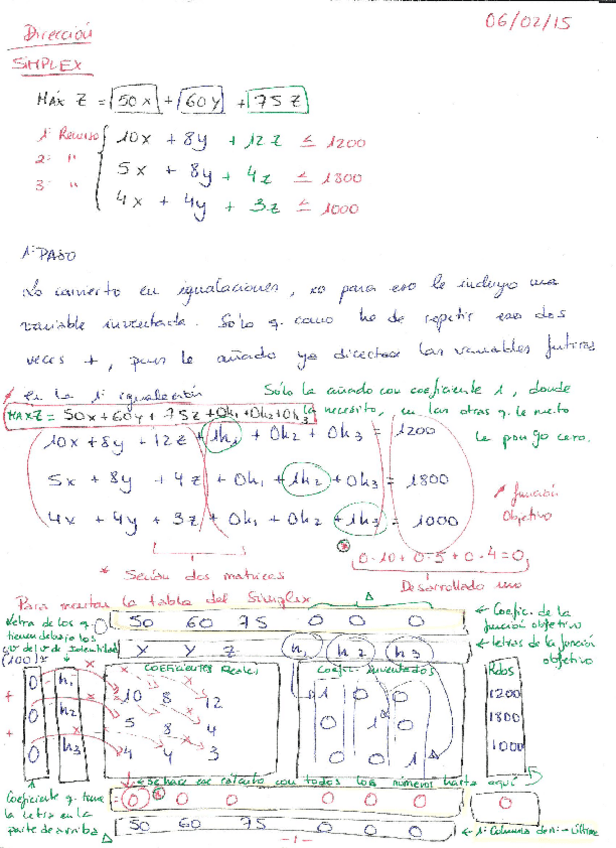 06/02/15
Dirección
SIMPLEX
MÁX Z = 50x + 60y + 75z
1º Recurso 10x + 8y + 12z ≤ 1200
2º " 5x + 8y + 4z ≤ 1800
3º " 4x + 4y + 3z ≤ 1000
1º PASO
Lo convierto en igualaciones, xo para eso le incluyo una
variable inventada. Sólo q. como he de repetir eso dos
veces +, pues le añado ya directax las variables futuras
en la 1ª igualación
Sólo la añado con coeficiente 1, donde
MAX Z = 50x + 60y + 75z + 0h1 + 0h2 + 0h3
la necesito, en las otras q. le meto
10x + 8y + 12z + 1h1 + 0h2 + 0h3 = 1200
le pongo cero.
5x + 8y + 4z + 0h1 + 1h2 + 0h3 = 1800
función
Objetivo
4x + 4y + 3z + 0h1 + 0h2 + 1h3 = 1000
0·10 + 0·5 + 0·4 = 0
* Serían dos matrices
Desarrollado uno
Para montar la tabla del Simplex
Letra de los q.
tienen debajo los
de Identidad
(100)
50 60 75 0 0 0
Coefic. de la
función objetivo
x y z h1 h2 h3
letras de la función
objetivo
COEFICIENTES Reales
Coefic. Inventados
Rdos
0 h1 10 8 12 1 0 0 1200
0 h2 5 8 4 0 1 0 1800
0 h3 4 4 3 0 0 1 1000
Se hace ese cálculo con todos los números hasta aquí
Coeficiente q. tiene
la letra en la
parte de arriba
0 0 0 0 0 0 0
50 60 75 0 0 0
1ª Columna
última
-1-